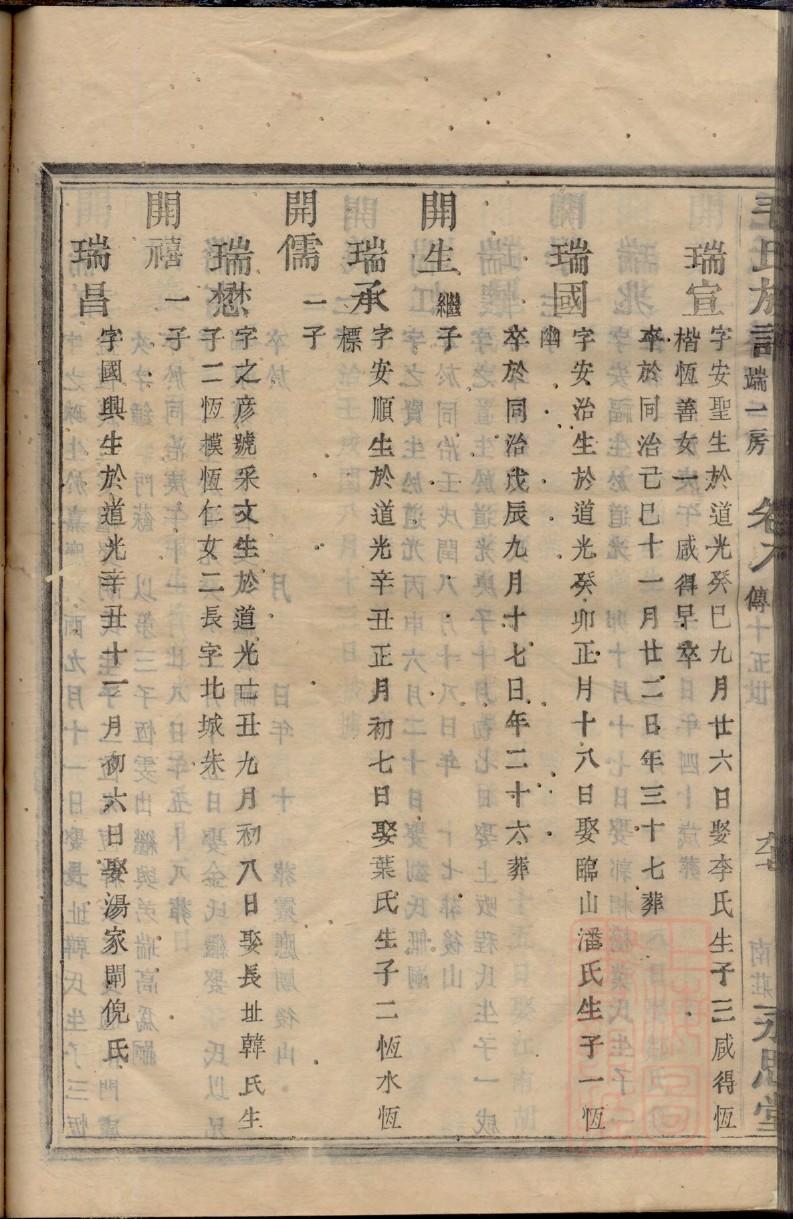 毛氏族譜 端一房 卷 傳 十五世 南莊 永思堂
瑞宣 字安聖生於道光癸巳九月廿六日娶李氏生子三咸得恆
楷恆善女一咸得早卒
卒於同治己巳十一月廿二日年三十七葬
瑞國 字安治生於道光癸卯正月十八日娶臨山潘氏生子一恆
幽
卒於同治戊辰九月十七日年二十六葬
開生 繼子
瑞承 字安順生於道光辛丑正月初七日娶葉氏生子二恆水恆
標
開儒 一子
瑞懋 字之彥號采文生於道光乙丑九月初八日娶長址韓氏生
子二恆模恆仁女二長字北城朱
開禧 一子
瑞昌 字國興生於道光辛丑十一月初六日娶湯家閘倪氏